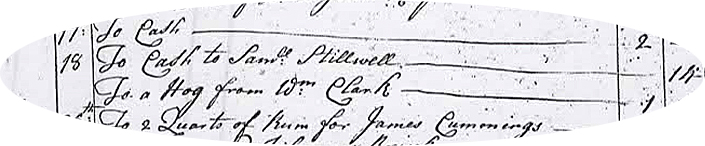 11: To Cash 2
18 To Cash to Saml. Stillwell 14
To a Hog from Wm. Clark 1
th To 2 Quarts of Rum for James Cummings